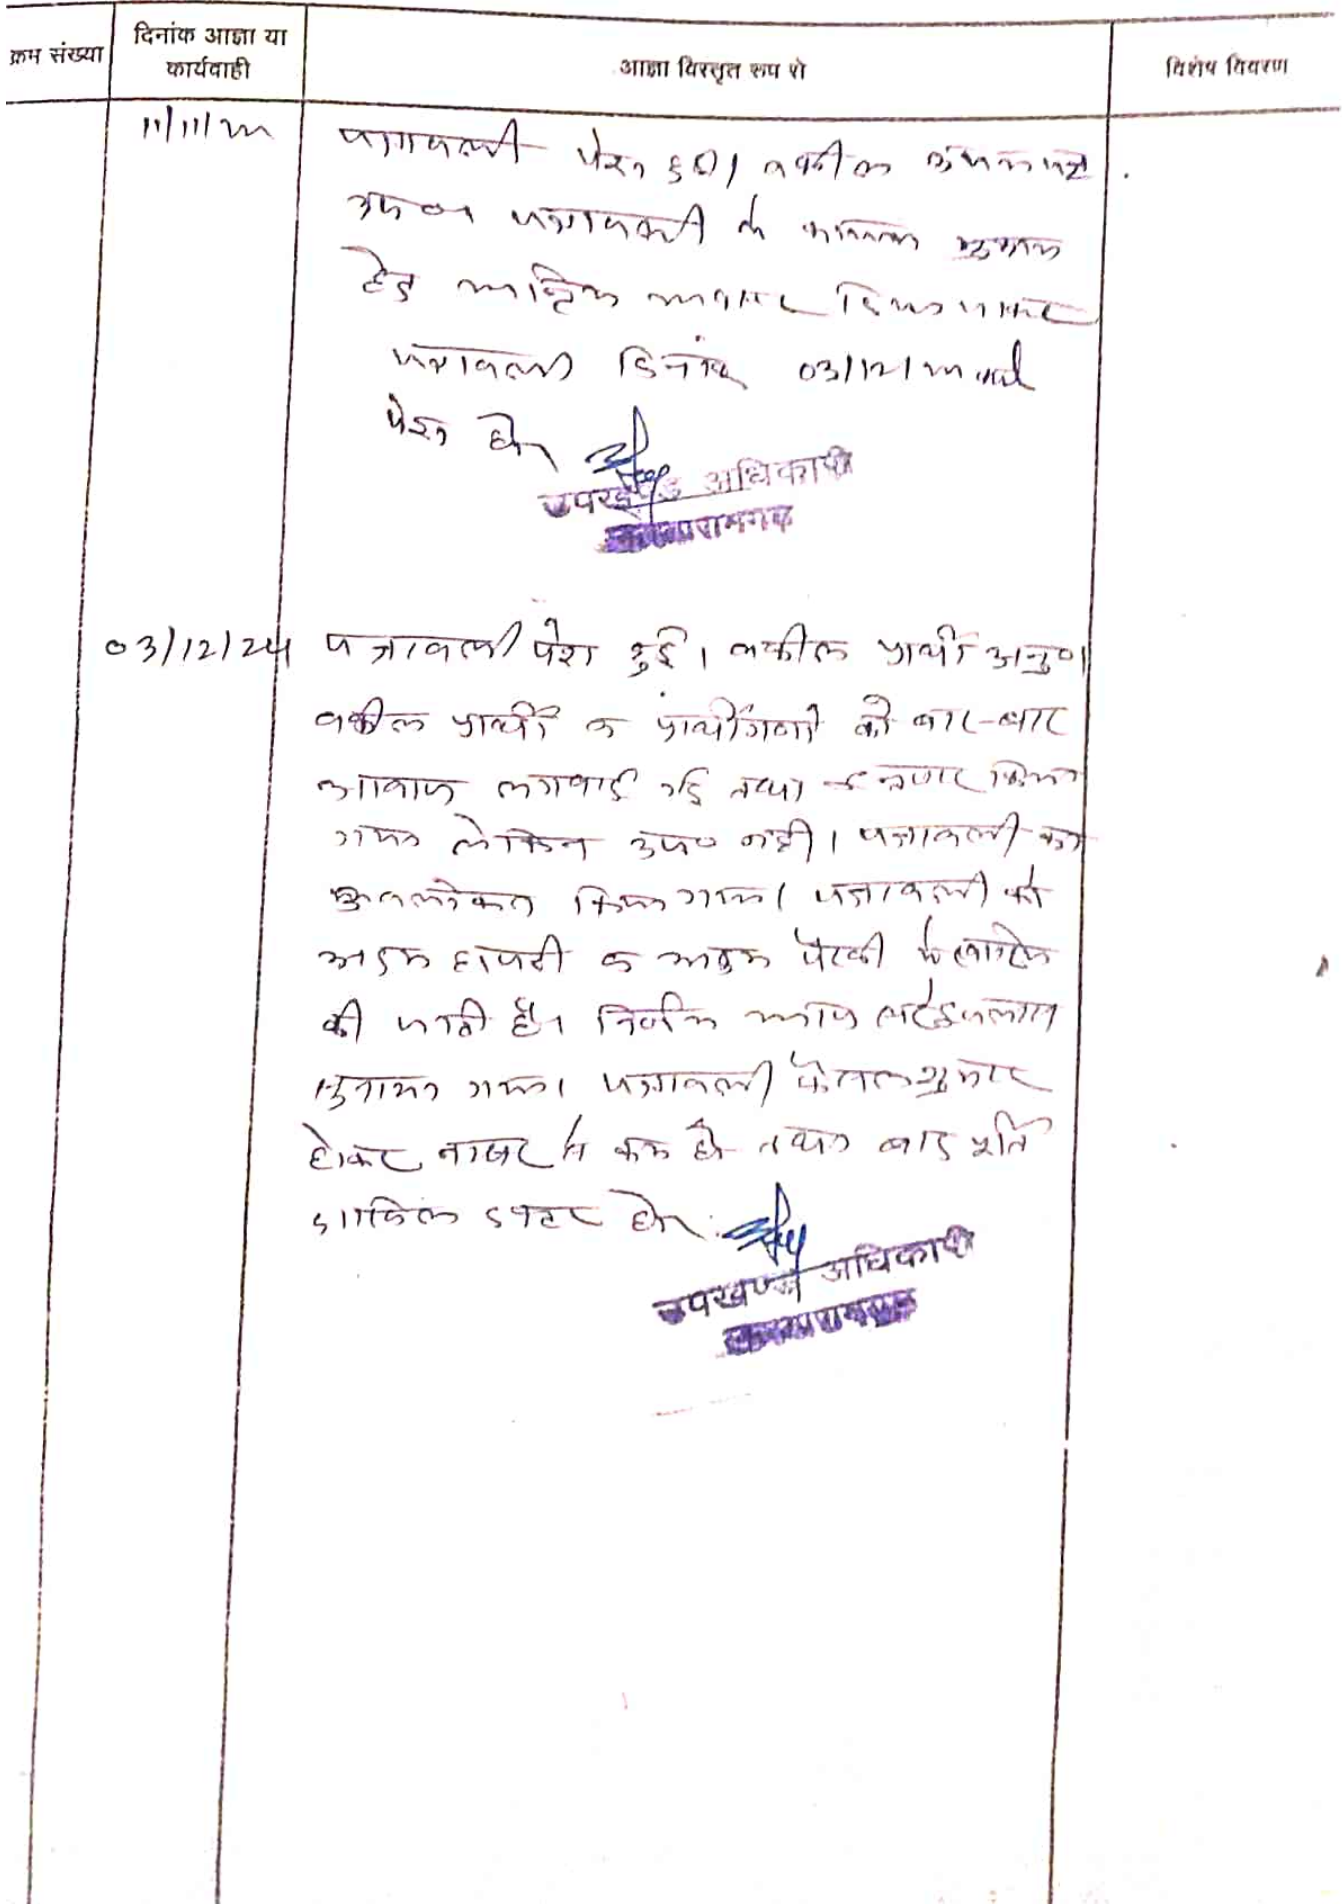 क्रम संख्या
दिनांक आज्ञा या
कार्यवाही
आज्ञा विस्तृत रूप से
विशेष विवरण
11/11/24
पत्रावली पेश हुई। वकील
उप० पत्रावली के
हेतु अन्तिम अवसर दिया जाकर
पत्रावली दिनांक 03/12/24 को
पेश हो।
उपखण्ड अधिकारी
03/12/24
पत्रावली पेश हुई। वकील प्रार्थी अनु०।
वकील प्रार्थी व प्रार्थीगणों को बार-बार
आवाज लगवाई गई तथा इन्तजार किया
गया लेकिन उप० नहीं। पत्रावली का
अवलोकन किया गया। पत्रावली को
अदम हाजरी व अदम पैरवी में खारिज
की जाती है। निर्णय आज सरे इजलास
सुनाया गया। पत्रावली फैसल शुमार
होकर नम्बर से कम हो तथा बाद पूर्ति
दाखिल दफ्तर हो।
उपखण्ड अधिकारी